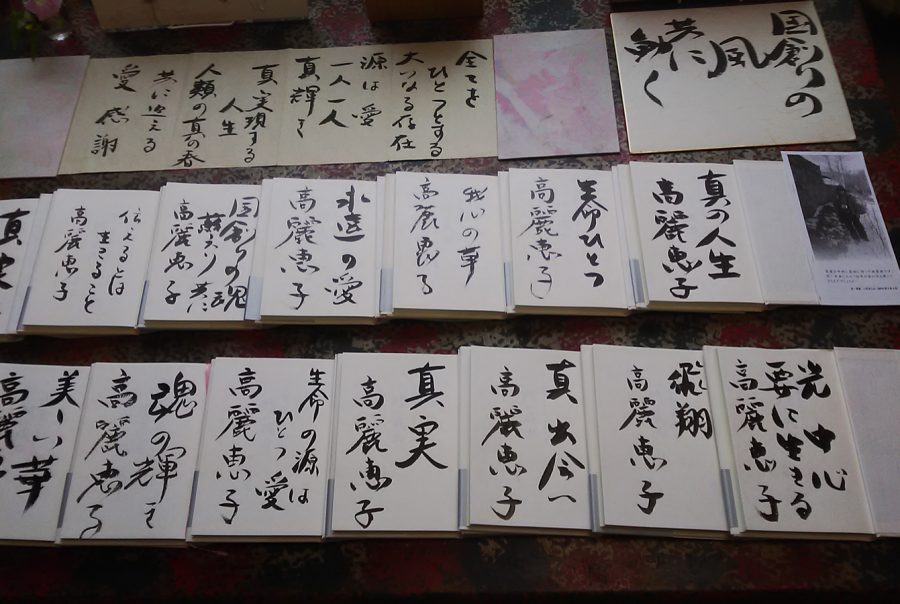 国創りの
風
共に
動く
全てを
ひとつとする
大いなる存在
源は愛
一人一人
真輝き
真実現する
人生
人類の真の春
共に迎える
愛 感謝
真の人生
高麗恵子
生命ひとつ
高麗恵子
我心の華
高麗恵子
永遠の愛
高麗恵子
国創りの魂
蘇えり共に
高麗恵子
伝えるとは
生きること
高麗恵子
光中心
要に生きる
高麗恵子
飛翔
高麗恵子
真出会へ
高麗恵子
真実
高麗恵子
生命の源は
ひとつ愛
高麗恵子
魂の輝き
高麗恵子
美しい華
高麗